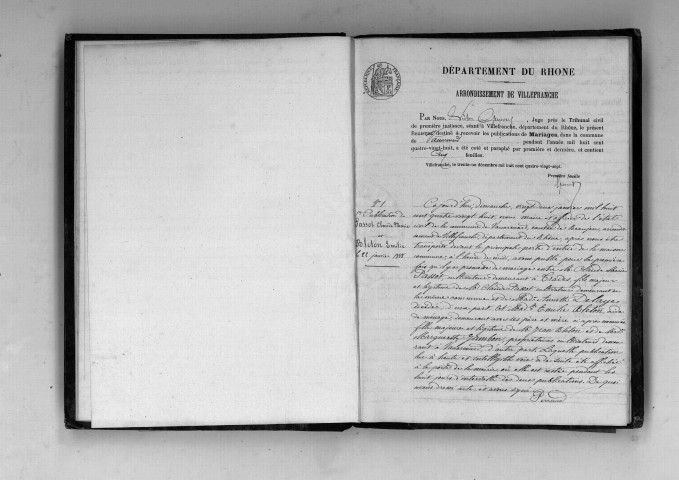 DÉPARTEMENT DU RHONE
ARRONDISSEMENT DE VILLEFRANCHE
PAR NOUS, Juge près le Tribunal civil
de première instance, séant à Villefranche, département du Rhône, le présent
destiné à recevoir les publications de Mariages, dans la commune
de pendant l'année mil huit cent
quatre-vingt-huit, a été coté et paraphé par première et dernière, et contient
feuilles.
Villefranche, le trente-un décembre mil huit cent quatre-vingt-sept.
Première feuille
N° 1
1re Publication de
Passot Claude Marie
et
Emilie
le 22 janvier 1888
Cejourd'hui, dimanche, vingt deux janvier mil huit
cent quatre vingt huit, nous maire et officier de l'état
civil de la commune de canton de
de Villefranche, département du Rhône, après nous être
transporté devant la principale porte d'entrée de la maison
commune, à l'heure de midi, avons publié pour la première
fois qu'il y a promesse de mariage entre Mr Claude Marie
Passot, cultivateur demeurant à Trades, fils majeur
et légitime de Mr Claude Passot cultivateur demeurant en
la même commune et de
décédée d'une part, et Emilie
de ménage, demeurant avec ses père et mère ci après nommés
fille majeure et légitime de Mr Jean et de
Marguerite propriétaires cultivateurs
à d'autre part. Laquelle publication
lue à haute et intelligible voix a de suite été affichée
à la porte de la mairie où elle est restée pendant les
huit jours d'intervalle des deux publications. De quoi
avons dressé acte et avons signé